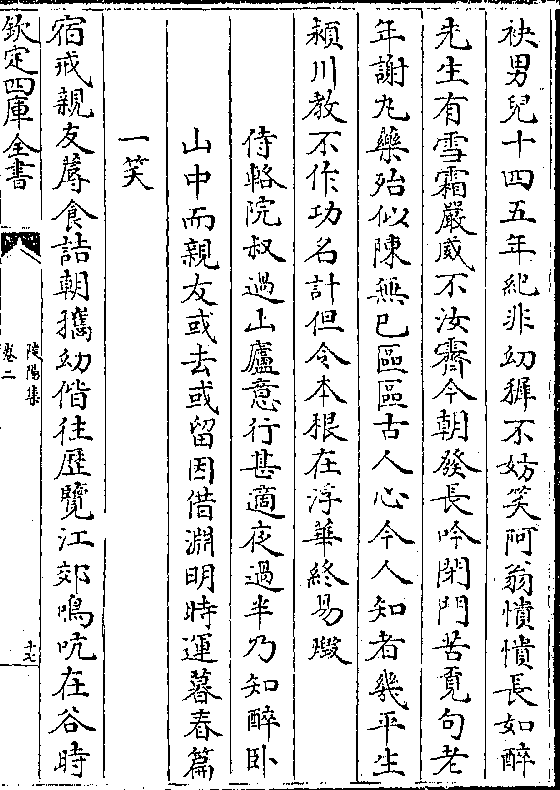 袂男兒十四五年紀非幼穉不妨笑阿翁憒憒長如醉
先生有雪霜嚴威不汝霽今朝發長吟閉門苦覓句老
年謝丸藥殆似陳無已區區古人心今人知者幾平生
潁川教不作功名計但令本根在浮華終易毁
侍輅院叔過山廬意行甚適夜過半乃知醉卧
山中而親友或去或留因借淵明時運暮春篇
一笑
宿戒親友蓐食詰朝攜幼偕往歷覽江郊鳴吭在谷時
欽定四庫全書
陵陽集
卷二
十七